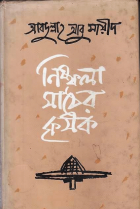 আবদুল্লাহ আবু সায়ীদ
নিষ্ফলা
মাঠের
কৃষক